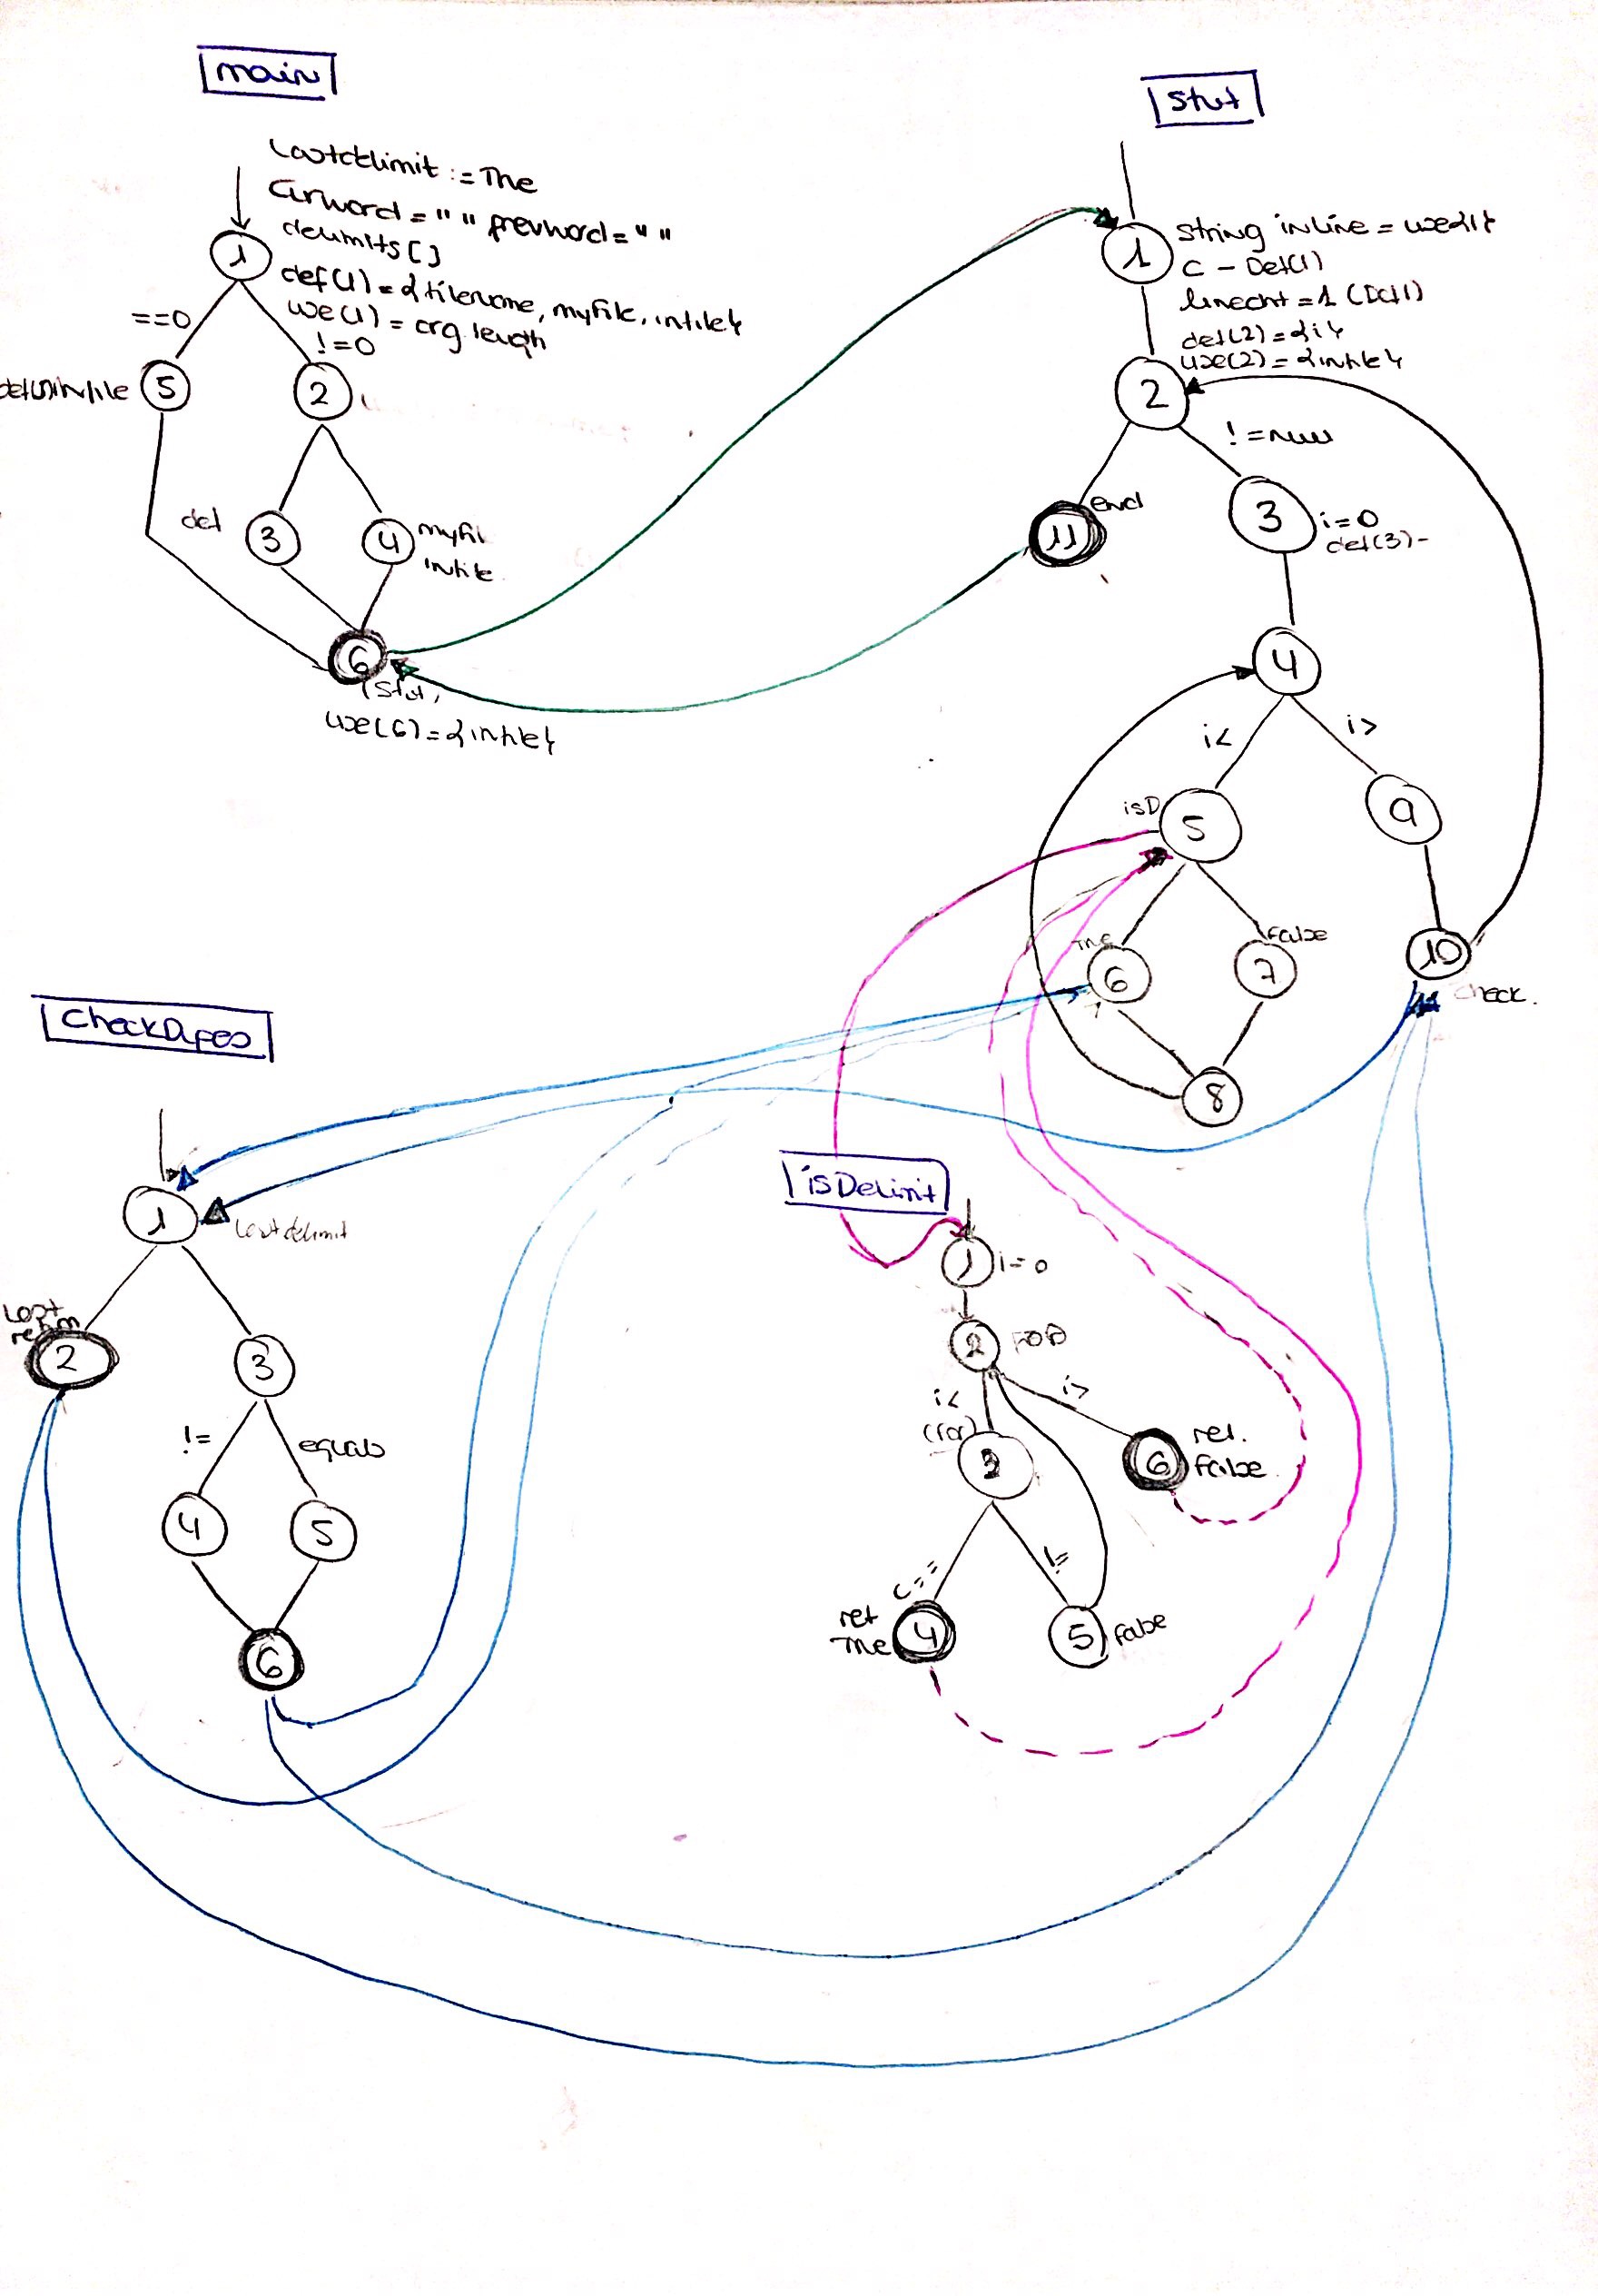 main
Lastdelimit := The
Curword = " " prevword = " "
delimits [ ]
def(1) = { filename, myFile, infile }
use(1) = arg.length
1
==0
!=0
5
2
def
3
4
myfil
infile
6
(stut,
use(6) = { infile }
stut
1
string inline =
c - Def(1)
linecnt = 1 (Def1)
def(2) = { i }
use(2) = { infile }
2
!= null
end
11
3
i=0
def(3) -
4
i<
i>
isD
5
9
6
false
7
10
check.
8
CheckDupes
1
Lastdelimit
2
3
!=
equals
4
5
6
isDelimit
1
i=0
2
FOR
i<
(for)
i>
3
6
ret.
false
c==
!=
ret
True
4
5
false